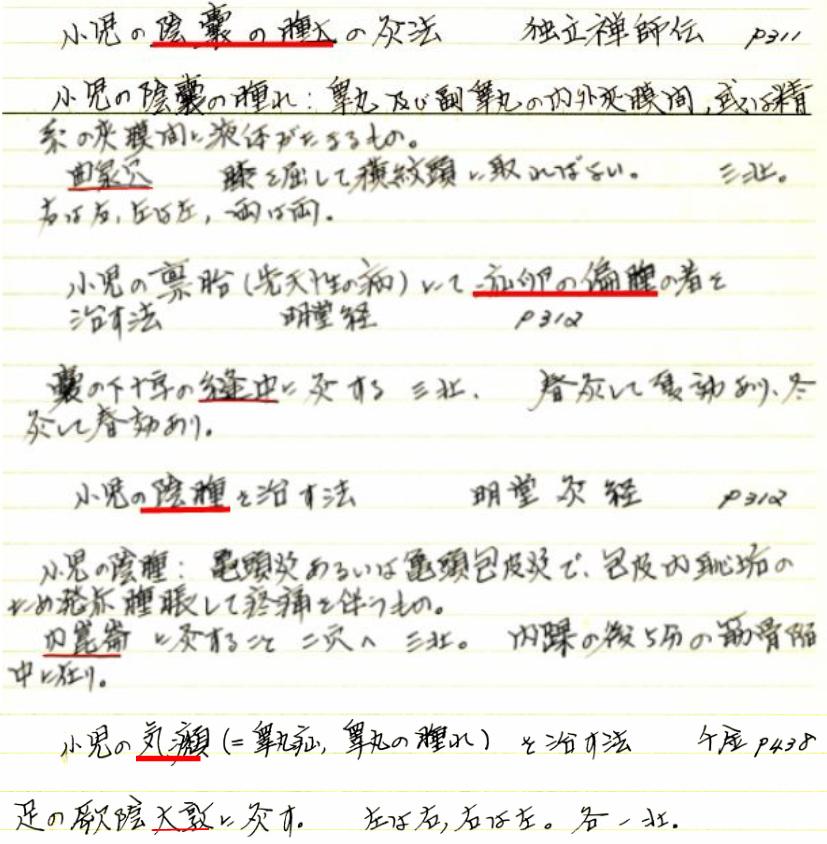 小児の陰嚢の腫大の灸法　独立禅師伝　P311
小児の陰嚢の腫れ：睾丸及び副睾丸の内外夾膜间，或は精
系の夾膜间に液体がたまるもの。
曲泉穴　膝を屈して横紋頭に取ればよい。　三壮。
右は右，左は左，両は両。
小児の禀胎（先天性の病）にて疝卵の偏腫の者を
治す法　明堂経　P312
嚢の下十字の縫中に灸する 三壮．　春灸して夏効あり、冬
灸して春効あり。
小児の陰腫を治す法　明堂灸経　P312
小児の陰腫：亀頭炎あるいは亀頭包皮炎で、包皮内恥垢の
ため発赤腫脹して疼痛を伴うもの。
内崑崙に灸すること 二穴へ 三壮。内踝の後5分の筋骨陥
中に在り。
小児の気㿗（＝睾丸疝，睾丸の腫れ）を治す法　千金 P438
足の厥陰大敦に灸す．　左は右，右は左。各一壮．